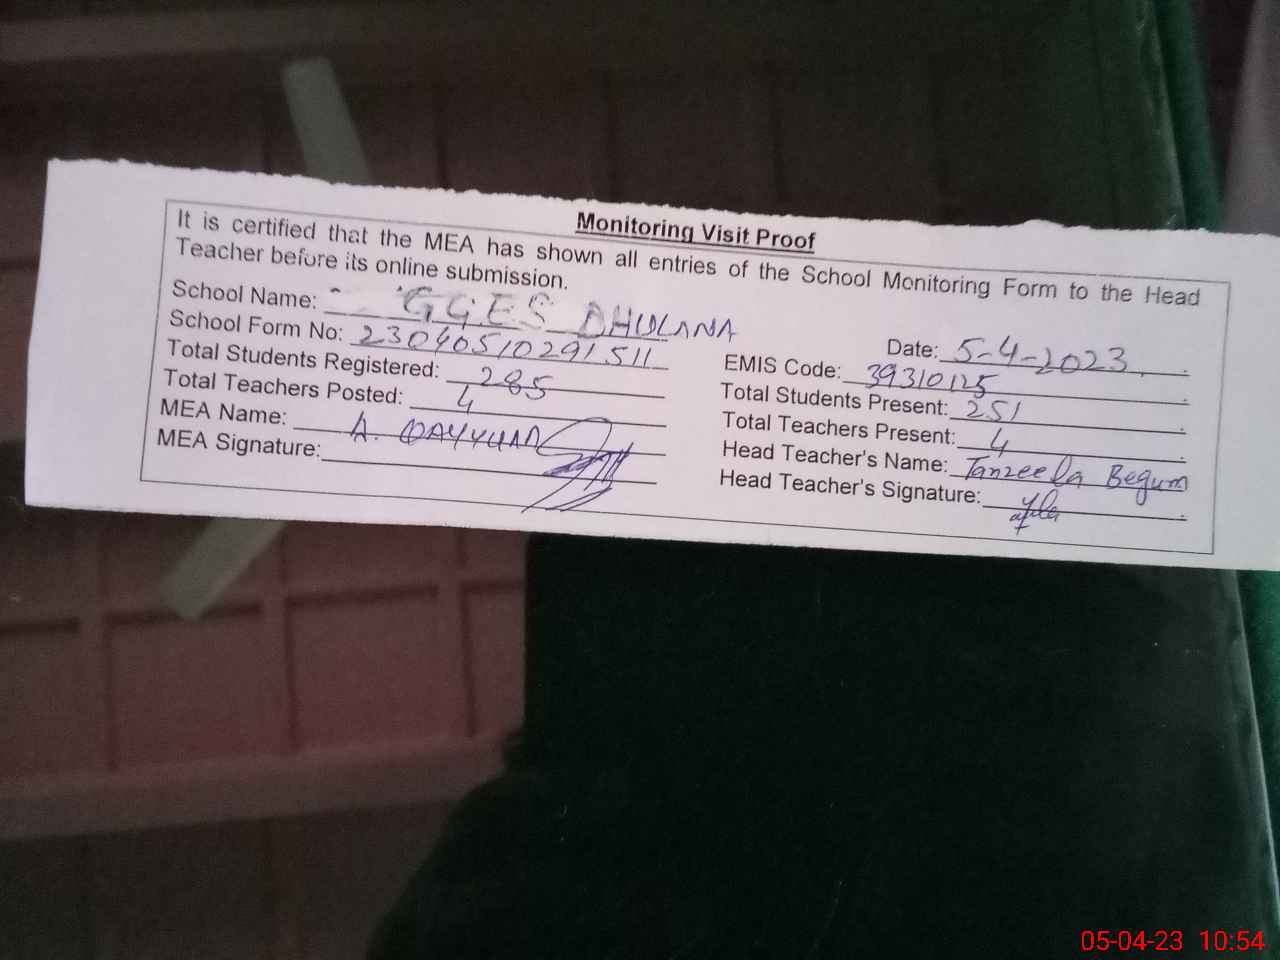 Monitoring Visit Proof
It is certified that the MEA has shown all entries of the School Monitoring Form to the Head
Teacher before its online submission.
School Name: GGES DHULANA
Date: 5-4-2023
School Form No: 23040510291511
EMIS Code: 39310125
Total Students Registered: 285
Total Students Present: 251
Total Teachers Posted: 4
Total Teachers Present: 4
MEA Name: A. QAYYUM
Head Teacher's Name: Tanzeela Begum
MEA Signature:
Head Teacher's Signature:
05-04-23 10:54